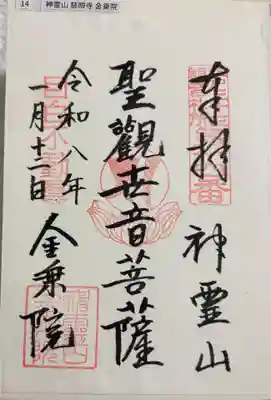 14 神霊山 慈眼寺 金乗院
奉拝 神霊山
聖觀世音菩薩
令和八年
一月十二日 金乗院